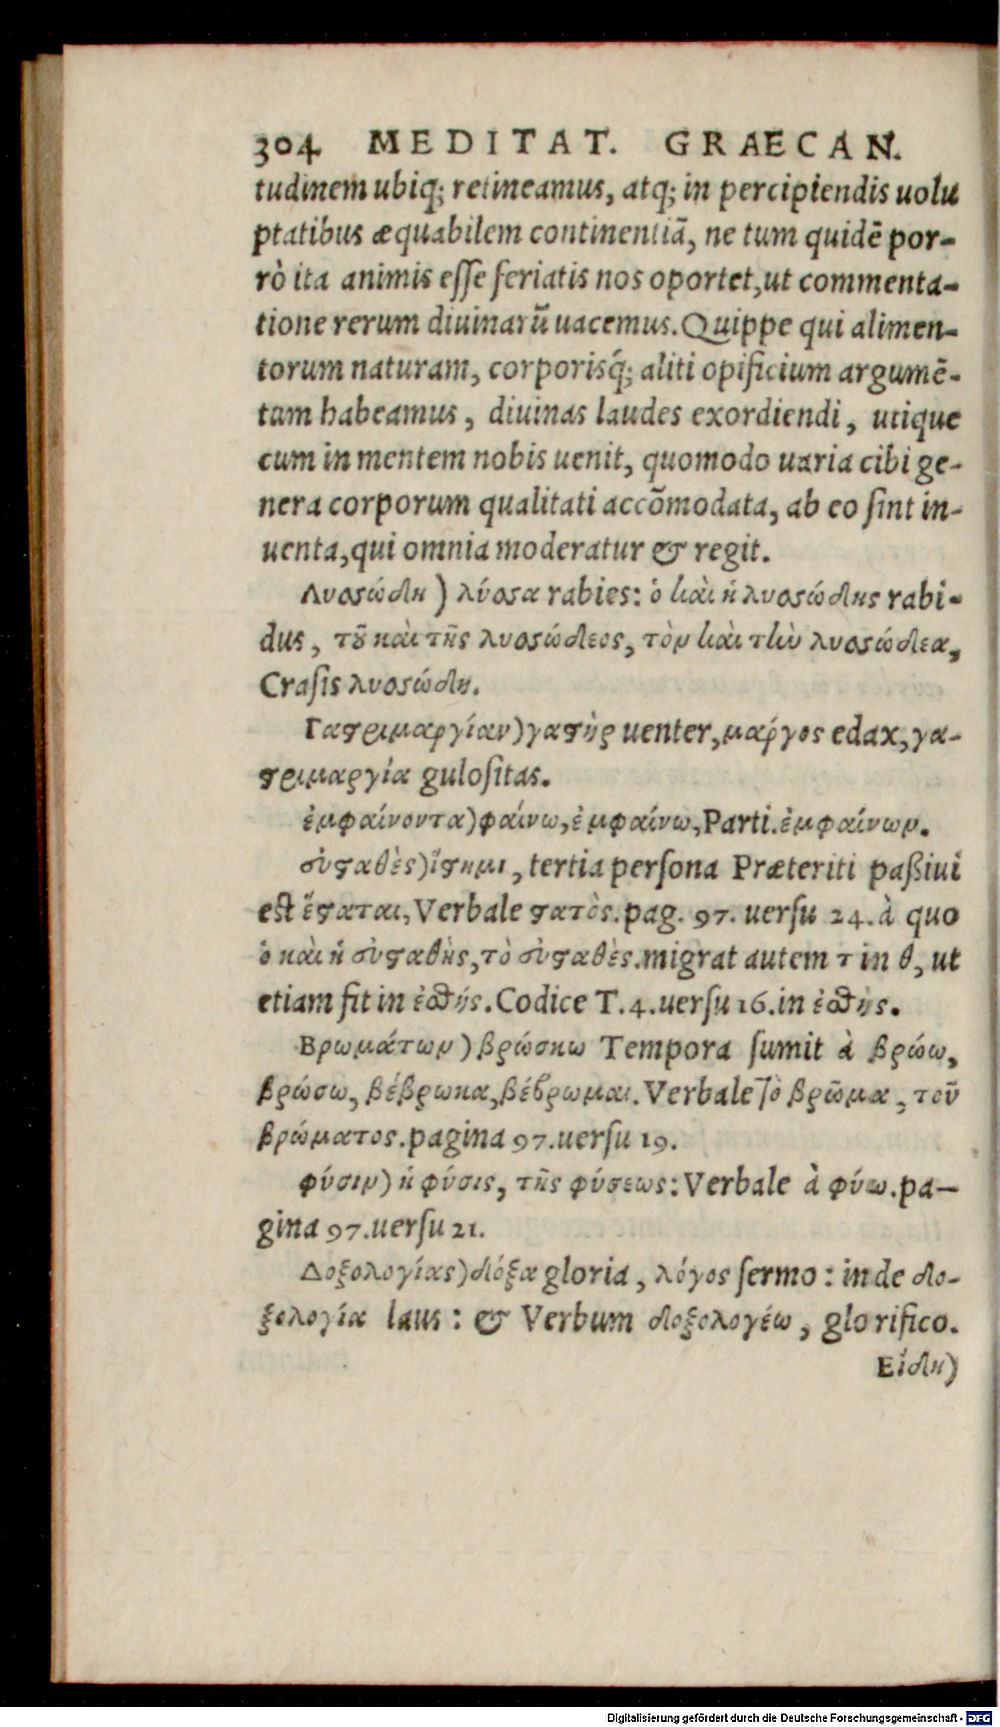 304 MEDITAT. GRAECAN.
tudinem ubiq; retineamus, atq; in percipiendis uolu
ptatibus æquabilem continentiā, ne tum quidē por-
rò ita animis esse feriatis nos oportet, ut commenta-
tione rerum diuinarū uacemus. Quippe qui alimen-
torum naturam, corporisq́; aliti opificium argumē-
tum habeamus, diuinas laudes exordiendi, utique
cum in mentem nobis uenit, quomodo uaria cibi ge-
nera corporum qualitati accōmodata, ab eo sint in-
uenta, qui omnia moderatur & regit.
Λυσσώδη) λύσσα rabies: ὁ καὶ ἡ λυσσώδης rabi-
dus, τοῦ καὶ τῆς λυσσώδεος, τὸν καὶ τὴν λυσσώδεα,
Crasis λυσσώδη.
Γαστριμαργίαν) γαστὴρ uenter, μάργος edax, γα-
στριμαργία gulositas.
ἐμφαίνοντα) φαίνω, ἐμφαίνω, Parti. ἐμφαίνων.
συσταθὲς) ἵστημι, tertia persona Præteriti paßiui
est ἕσταται, Verbale στατὸς. pag. 97. uersu 24. à quo
ὁ καὶ ἡ συσταθὴς, τὸ συσταθὲς. migrat autem τ in θ, ut
etiam fit in ἐσθής. Codice T. 4. uersu 16. in ἐσθής.
Βρωμάτων) βρώσκω Tempora sumit à βρώω,
βρώσω, βέβρωκα, βέβρωμαι. Verbale τὸ βρῶμα, τοῦ
βρώματος. pagina 97. uersu 19.
φύσιν) ἡ φύσις, τῆς φύσεως: Verbale à φύω. pa-
gina 97. uersu 21.
Δοξολογίας) δόξα gloria, λόγος sermo: inde δο-
ξολογία laus: & Verbum δοξολογέω, glorifico.
Εἴδη)
Digitalisierung gefördert durch die Deutsche Forschungsgemeinschaft - DFG